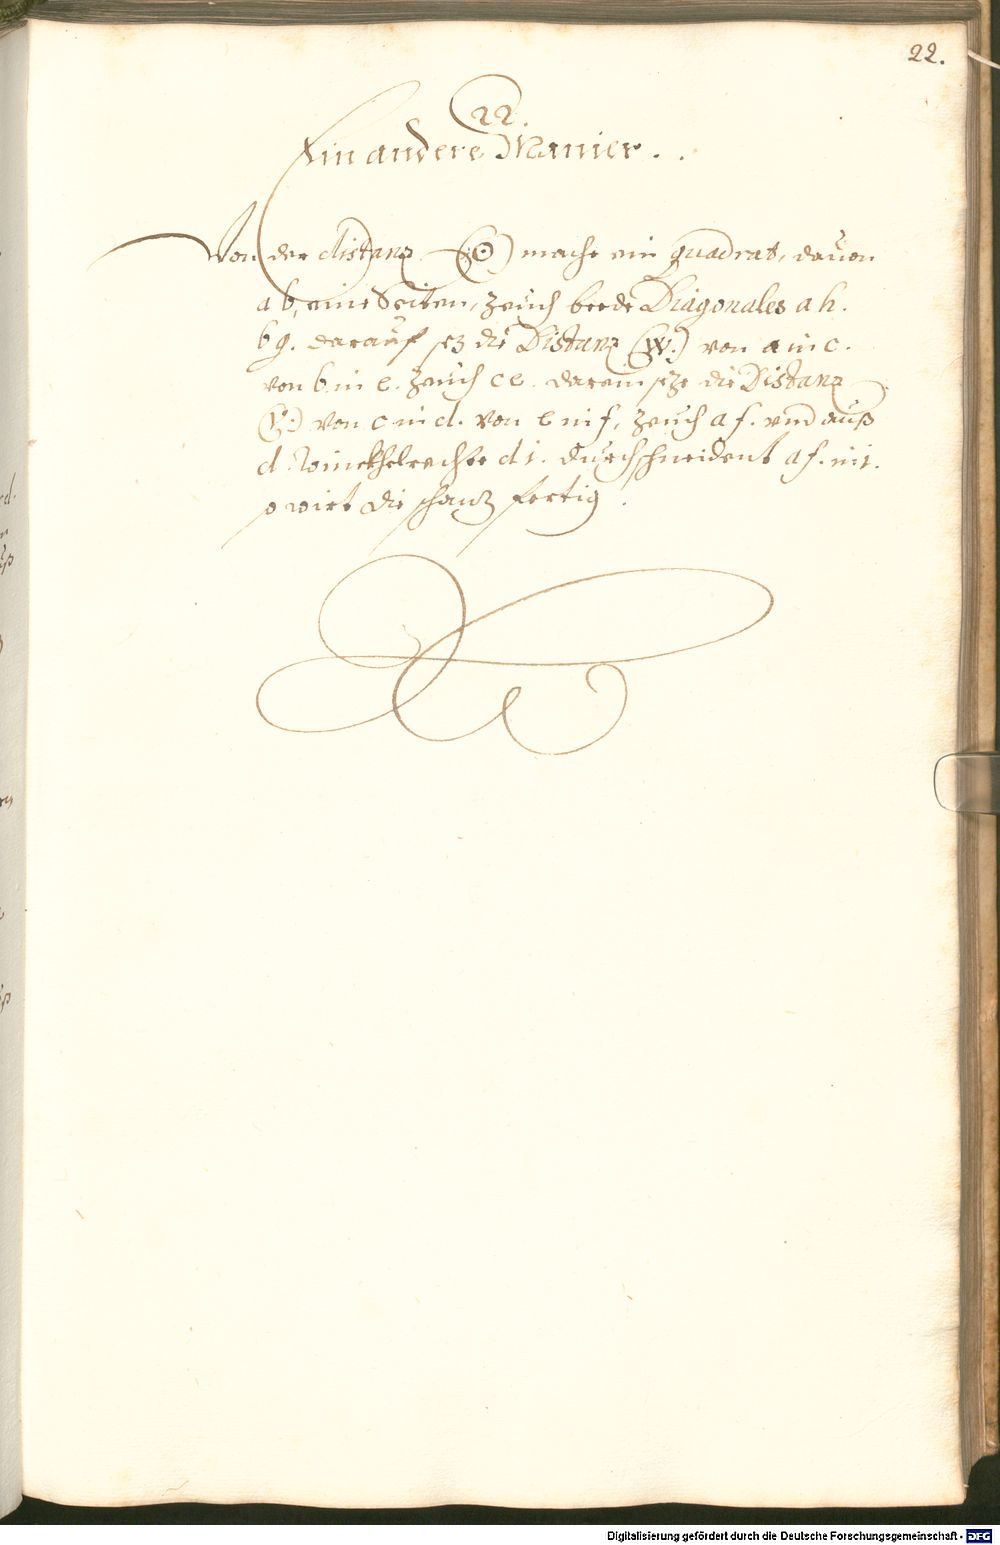 22.
22.
Ein andere Manier.
Von der distanz (☉) mache ein quadrat, dauon
a b, eine Seiten, zeuch beede Diagonales a h.
b g. darauf sez die Distanz (W.) von a in c.
von b in e. zeuch c e. darein seze die Distanz
von c in d. von e in f, zeuch a f. vnd auß
d. Winckhelrechte d i. durchschneident a f. in i.
so wirt die schanz fertig.
Digitalisierung gefördert durch die Deutsche Forschungsgemeinschaft - DFG